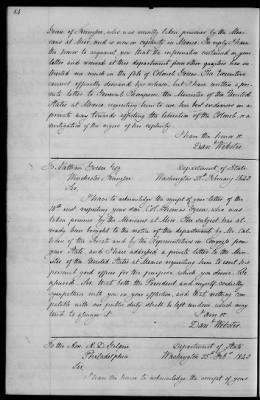 84
Green of Tennessee, who was recently taken prisoner by the Mexi-
cans at Mier, and is now in captivity in Mexico. In reply I have
the honor to acquaint you that the information contained in your
letter and received at this department from other quarters has in-
terested me much in the fate of Colonel Green. The Executive
cannot officially demand his release, but I have written a pri-
vate letter to General Thompson, the Minister of the United
States at Mexico requesting him to use his best endeavors in a
private way towards effecting the liberation of the Colonel, or a
mitigation of the rigor of his captivity.
I have the honor &c
Danl Webster.
To Nathan Green Esq Department of State
Winchester, Tennessee Washington 25th February 1843
Sir,
I have to acknowledge the receipt of your letter of the
10th inst. respecting your son Col. Thomas Green, who was
taken prisoner by the Mexicans at Mier. The subject has al-
ready been brought to the notice of the department by Mr.
of the Senate and by the Representatives in Congress from
your State and I have addressed a private letter to the Minis-
ter of the United States at Mexico requesting him to exert his
personal good offices for the purposes which you desire. Be
assured, Sir, that both the President and myself cordially
sympathize with you in your affliction, and that nothing com-
patible with our public duty shall be left undone which may
tend to assuage it. I am &c
Danl Webster.
To the Hon. Department of State
Philadelphia Washington 25th Feby. 1843
Sir,
I have the honor to acknowledge the receipt of your